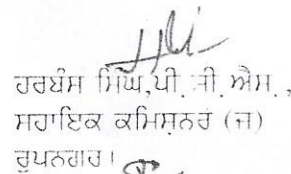 ਹਰਬੰਸ ਸਿੰਘ,ਪੀ.ਸੀ.ਐਸ.,
ਸਹਾਇਕ ਕਮਿਸ਼ਨਰ (ਜ)
ਰੂਪਨਗਰ।